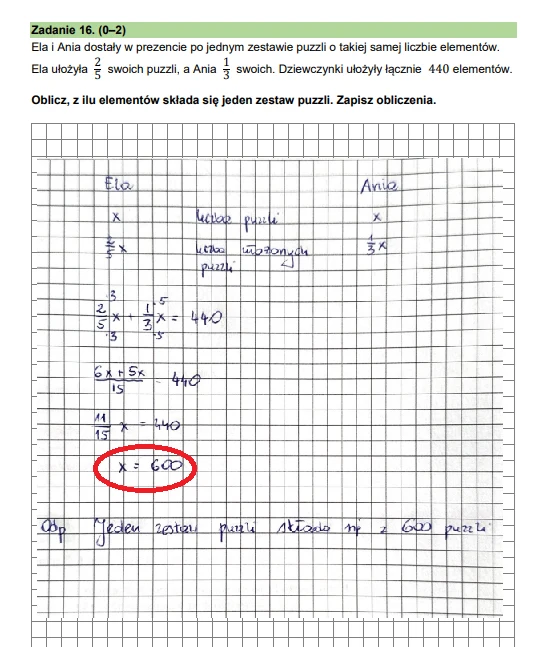 Zadanie 16. (0–2)
Ela i Ania dostały w prezencie po jednym zestawie puzzli o takiej samej liczbie elementów.
Ela ułożyła 2/5 swoich puzzli, a Ania 1/3 swoich. Dziewczynki ułożyły łącznie 440 elementów.
Oblicz, z ilu elementów składa się jeden zestaw puzzli. Zapisz obliczenia.
Ela Ania
x liczba puzzli x
2/5 x liczba ułożonych 1/3 x
puzzli
·3 ·5
2/5 x + 1/3 x = 440
·3 ·5
6x + 5x / 15 = 440
11/15 x = 440
x = 600
Odp Jeden zestaw puzzli składa się z 600 puzzli